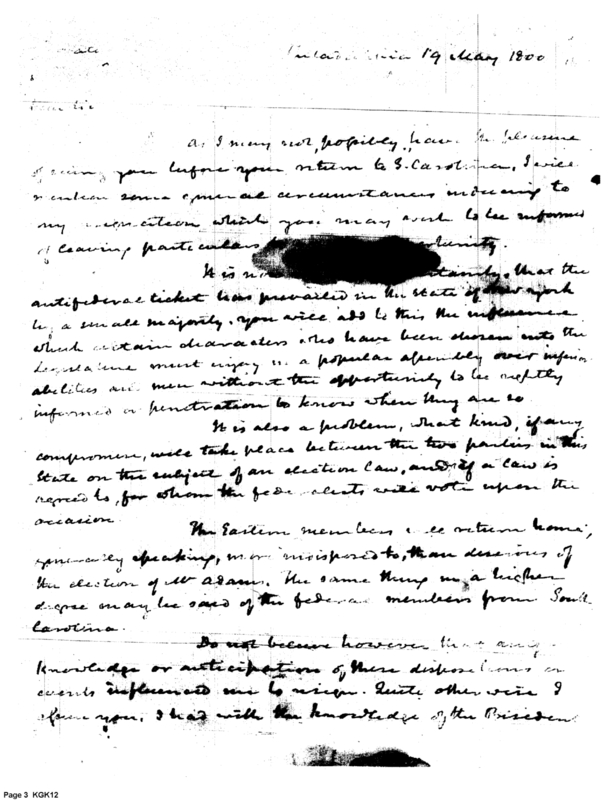 Philadelphia 19 May 1800
Dear Sir
As I may not, possibly, have the pleasure
of seeing you before your return to S. Carolina, I will
mention some general circumstances inducing to
my resignation which you may wish to be informed
of leaving particulars
It is now certainly, that the
antifederal ticket has prevailed in the State of New York
by a small majority. You will add to this the influence
which certain characters who have been chosen into the
Legislature must enjoy in a popular assembly over inferior
abilities and men without the opportunity to be rightly
informed or penetration to know when they are so
It is also a problem, what kind, if any
compromise, will take place between the two parties in this
State on the subject of an election law, and if a law is
agreed to, for whom the federalists will vote upon the
occasion
The Eastern members will return home,
generally speaking, more indisposed to, than desirous of
the election of Mr Adams. The same thing in a higher
degree may be said of the federal members from South
Carolina.
Do not believe however that any
knowledge or anticipations of these dispositions or
events influenced me to resign. Quite otherwise I
assure you. I had with the knowledge of the President
Page 3 KGK12